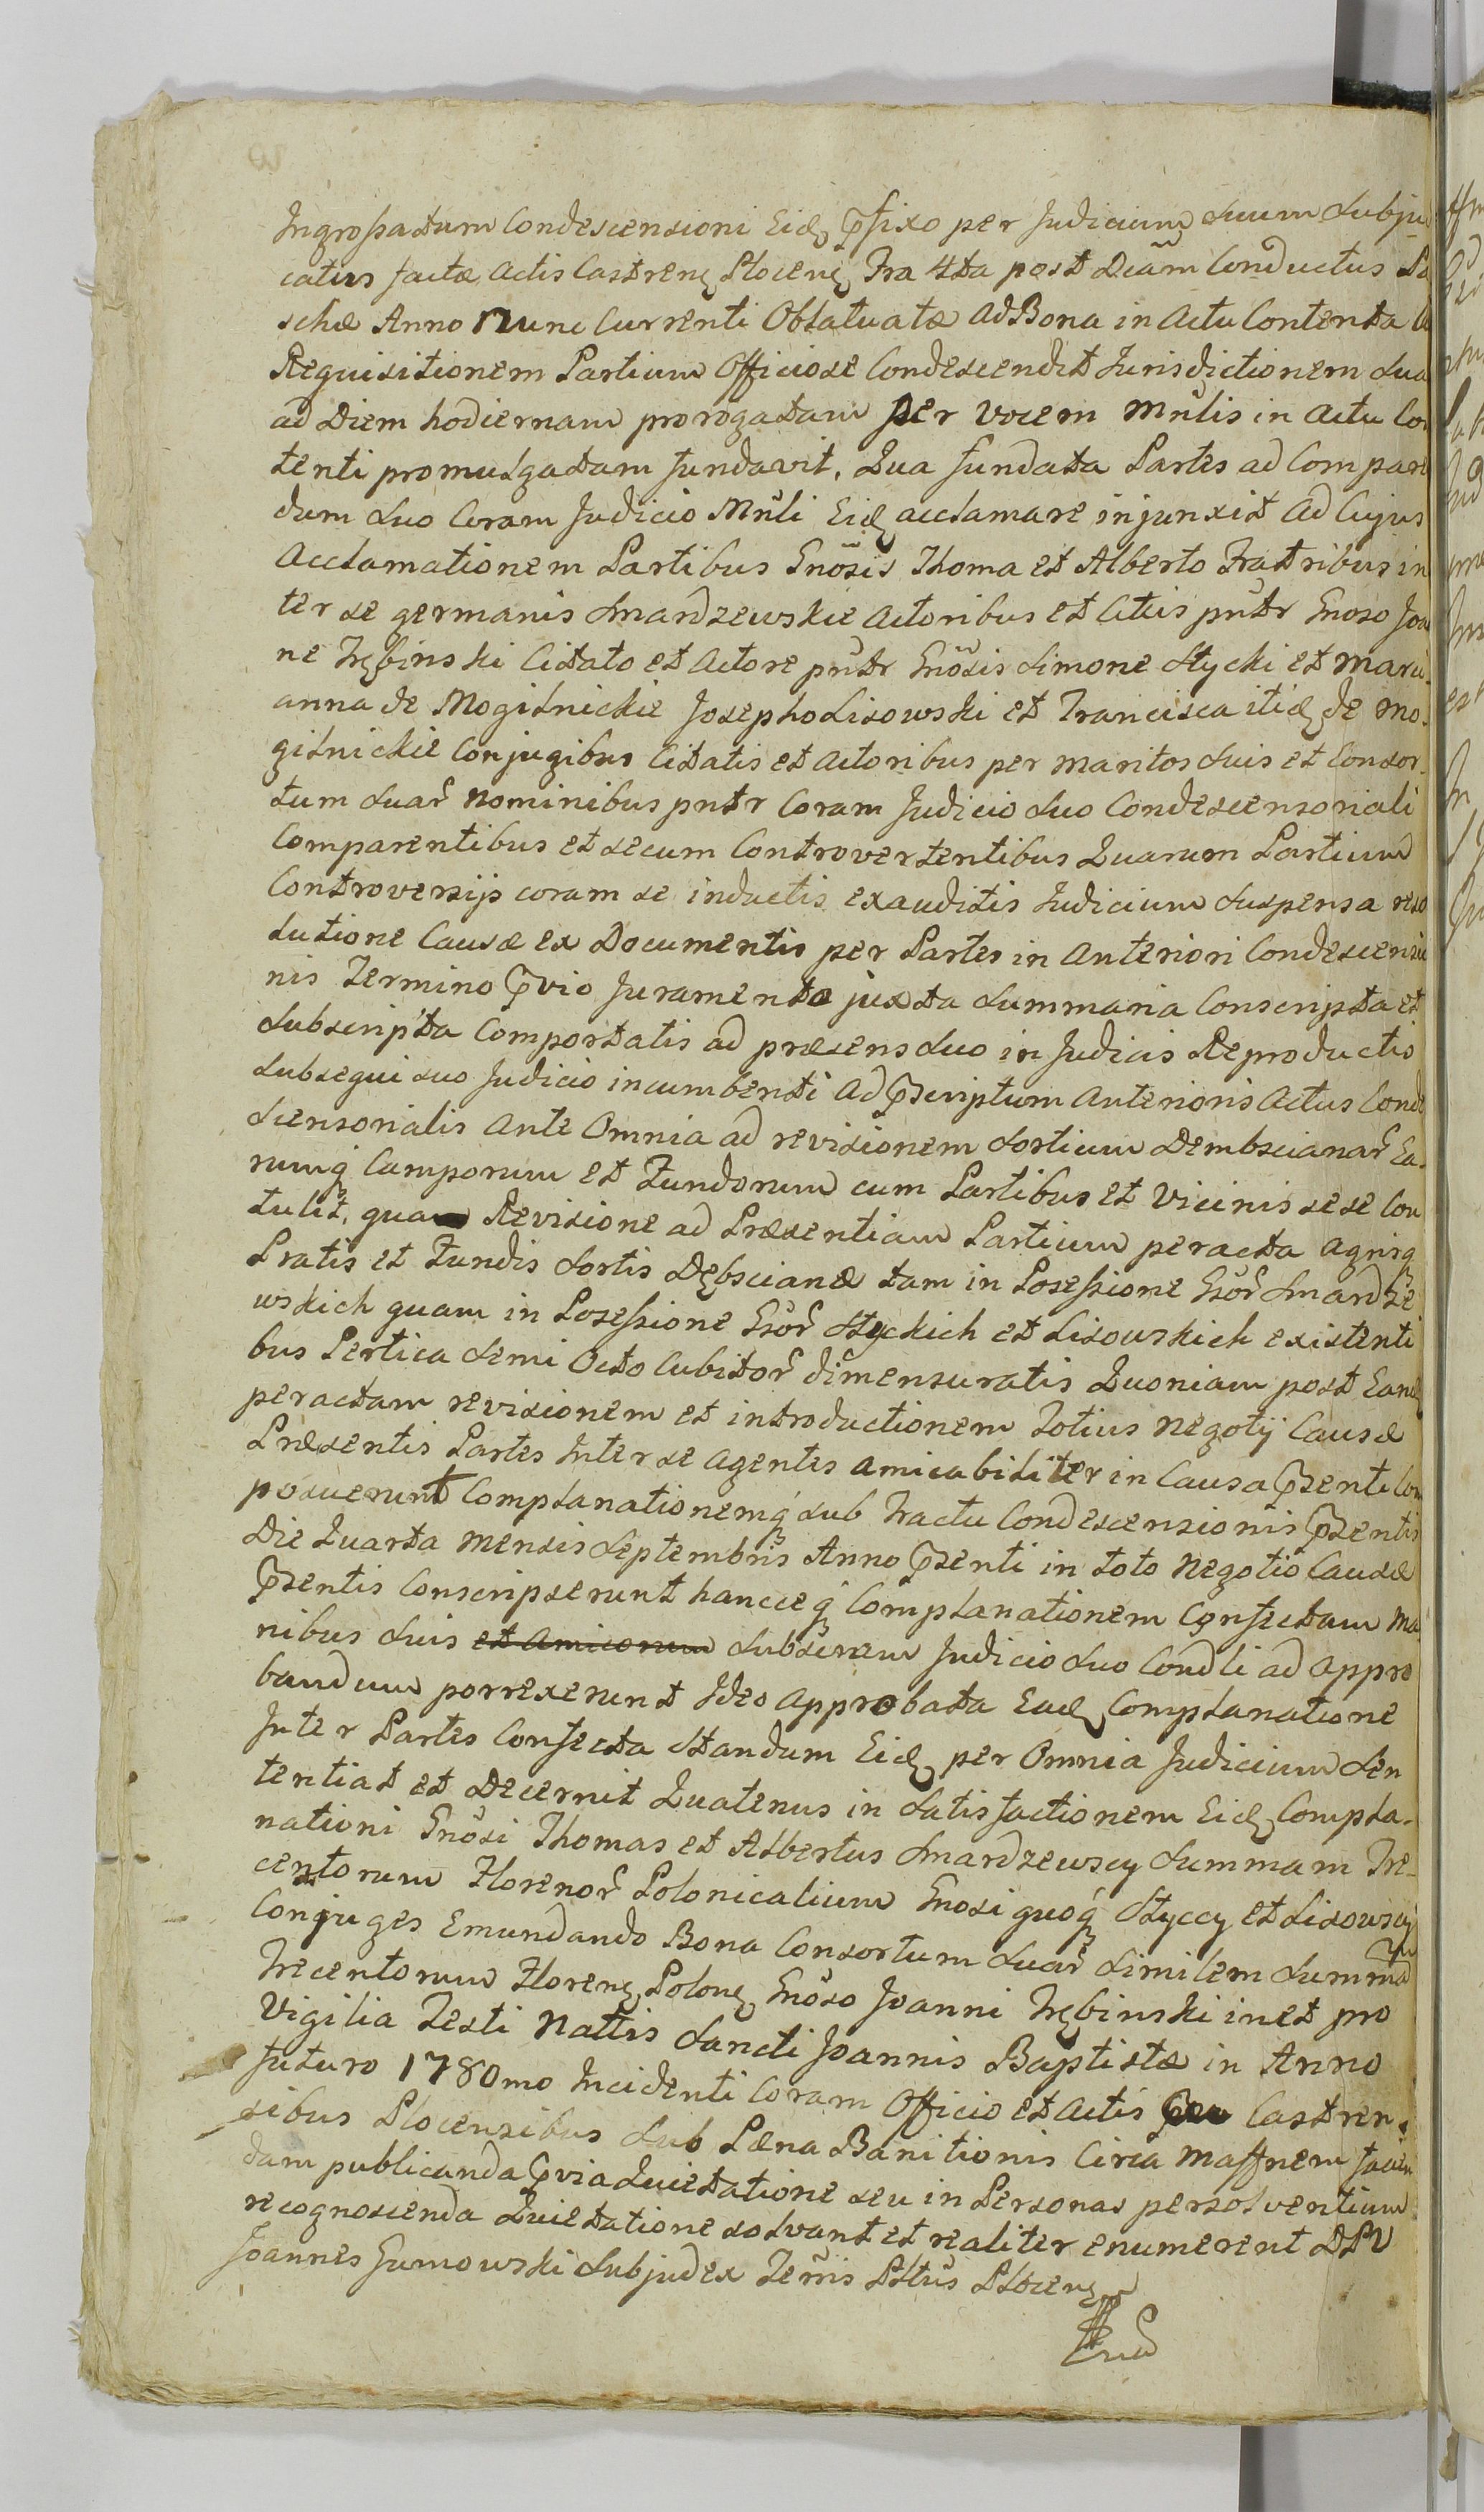 Ingrossatum Condescensioni Eid p̃fixo per Judicium Suum Subju
catus factæ Actis Castren Plocen Fra 4ta post Dcam Conductus Pa
schæ Anno Nunc Currenti Oblatuatæ Ad Bona in Actu Contenta
Requisitionem Partium Officiose Condescendit Jurisdictionem Sua
ad Diem hodiernam prorogatam per Vocem Mnlis in Actu Con
tenti promulgatam fundavit. Qua fundata Partes ad Comparen
dum Suo Coram Judicio Mnli Eid acclamare injunxit Ad Cujus
Acclamationem Partibus Gnosis Thoma et Alberto Fratribus in
ter se germanis Smardzewskie Actoribus et Cttis pntr Gnoso Joa
ne Trębinski Citato et Actore pntr Gnosis Simone Stycki et Mari
anna de Mogilnickie Josepho Lisowski et Francisca itid de Mo
gilnickie Conjugibus Citatis et Actoribus per Maritos Suis et Consor
tum Suar Nominibus pntr Coram Judicio Suo Condescensoriali
Comparentibus et secum Controvertentibus Quarum Partium
Controversijs coram se inductis exauditis Judicium Suspensa reso
lutione Causæ ex Documentis per Partes in Anteriori Condescensio
nis Termino p̃vio Juramento juxta Summaria Conscripta et
Subscripta Comportatis ad præsens Suo in Judicis Reproductis
Subsequi suo Judicio incumbenti Ad p̃scriptum Anterioris Actus Conde
scensorialis Ante Omnia ad revisionem Sortium Dembscianar Ea
rumq Camporum et Fundorum cum Partibus et Vicinis sese Con
tulit, qua Revisione ad Præsentiam Partium peracta Agrisq
Pratis et Fundis Sortis Dębscianæ tam in Posessione Gsor Smardze
wskich quam in Posessione Gsor Styckich et Lisowskich existenti
bus Pertica Semi Octo Cubitor dimensuratis Quoniam post Eand
peractam revisionem et introductionem Totius Negotij Causæ
Præsentis Partes Inter se Agentes Amicabiliter in Causa p̃senti Com
posuerunt Complanationemq sub Tractu Condescensionis p̃sentis
Die Quarta Mensis Septembris Anno p̃senti in toto Negotio Causæ
p̃sentis Conscripserunt hancceq Complanationem Confectam Ma
nibus Suis et Amicorum Subscram Judicio Suo Condli ad Appro
bandum porrexerunt Ideo Approbata Ead Complanatione
Inter Partes Confecta Standum Eid per Omnia Judicium Sen
tentiat et Decernit Quatenus in Satisfactionem Eid Compla
nationi Gnosi Thomas et Albertus Smardzewscy Summam Tre
centorum Florenor Polonicalium Gnosi quoq Styccy et Lisowscy
Conjuges Emundando Bona Consortum Suar Similem Summam
Trecentorum Floren Polon Gnoso Joanni Trębinski in et pro
Vigilia Festi Nattis Sancti Joannis Baptistæ in Anno
futuro 1780mo Incidenti Coram Officio et Actis Castren
sibus Plocensibus Sub Pæna Banitionis Circa Maffnem facien
dam publicanda p̃via Quietatione seu in Personas persolventium
recognoscenda Quietatione solvant et realiter enumerent DPV
Joannes Gumowski Subjudex Terris Pltus Plocen